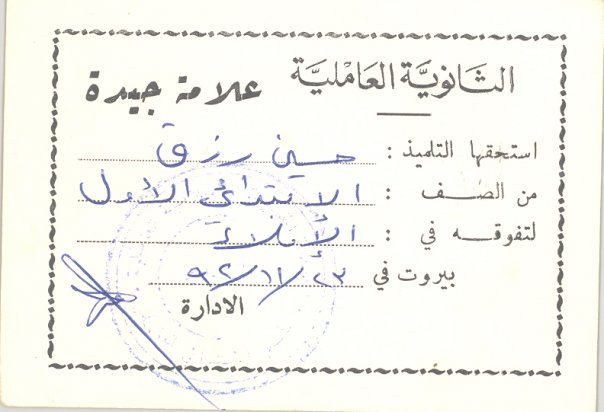 الثانويَّة العَامْليَّة
علامة جيدة
استحقها التلميذ : حسين رزق
من الصف : الابتدائي الأول
لتفوقه في : الإملاء
بيروت في ٢٣/١١/٩٢
الادارة